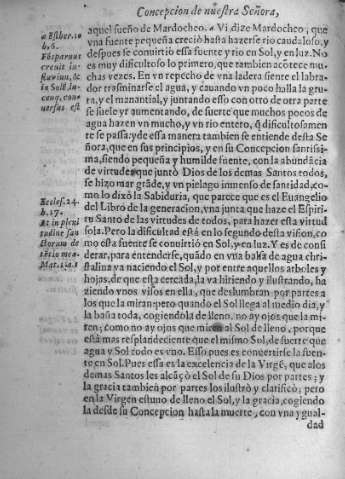 Concepcion de nuestra Señora,
a Esther. 10
b. 6.
Fons paruus
creuit in
fluuium, &
in Solē, lu-
cemq; con-
uersus est
aquel sueño de Mardocheo. a Vi dize Mardocheo, que
vna fuente pequeña crecio hasta hazerse rio caudaloso, y
despues se conuirtio essa fuente y rio en Sol, y en luz. No
es muy dificultoso lo primero, que tambien acōtece mu-
chas vezes. En vn repecho de vna ladera siente el labra-
dor trasminarse el agua, y cauando vn poco halla la gru-
ta, y el manantial, y juntando esso con otro de otra parte
se suele yr aumentando, de suerte que muchos pocos de
agua hazen vn mucho, y vn rio entero, q̄ dificultosamen
te se passa: y de essa manera tambien se entiende desta Se
ñora, que en sus principios, y en su Concepcion santissi-
ma, siendo pequeña y humilde fuente, con la abundācia
de virtudes que juntò Dios de los demas Santos todos,
se hizo mar grāde, y vn pielago inmenso de santidad, co-
mo lo dixò la Sabiduria, que parece que es el Euangelio
del Libro de la generacion, vna junta que haze el Espiri-
tu Santo de las virtudes de todos, para hazer esta virtud
sola. Pero la dificultad està en lo segundo desta vision, co-
mo esta fuente se conuirtio en Sol, y en luz. Y es de consi
derar, para entenderse, quādo en vna balsa de agua chri-
stalina va naciendo el Sol, y por entre aquellos arboles y
hojas, de que està cercada, la va hiriendo y ilustrando, ha
ziendo vnos visos en ella, que deslumbran por partes a
los que la miran: pero quando el Sol llega al medio dia, y
la baña toda, cogiendola de lleno, no ay ojos que la mi-
ren; como no ay ojos que miren al Sol de lleno, porque
està mas resplandeciente que el mismo Sol, de suerte que
agua y Sol todo es vno. Esso pues es conuertirse la fuen-
te en Sol. Pues essa es la excelencia de la Virgē, que a los
demas Santos les alcāçò el Sol de su Dios por partes; y
la gracia tambien por partes los ilustrò y clarificò; pero
en la Virgen estuuo de lleno el Sol, y la gracia, cogiendo
la desde su Concepcion hasta la muerte, con vna ygual-
dad
Eccles. 24.
b. 17.
Et in pleni
tudine san
ctorum de
tētio mea.
Mat. 1. a. 1